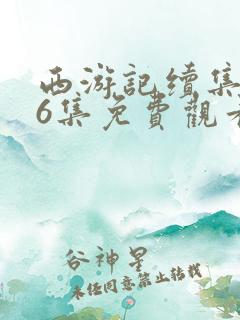 西游記續集
6集免費觀看
谷神星
未經同意禁止轉載